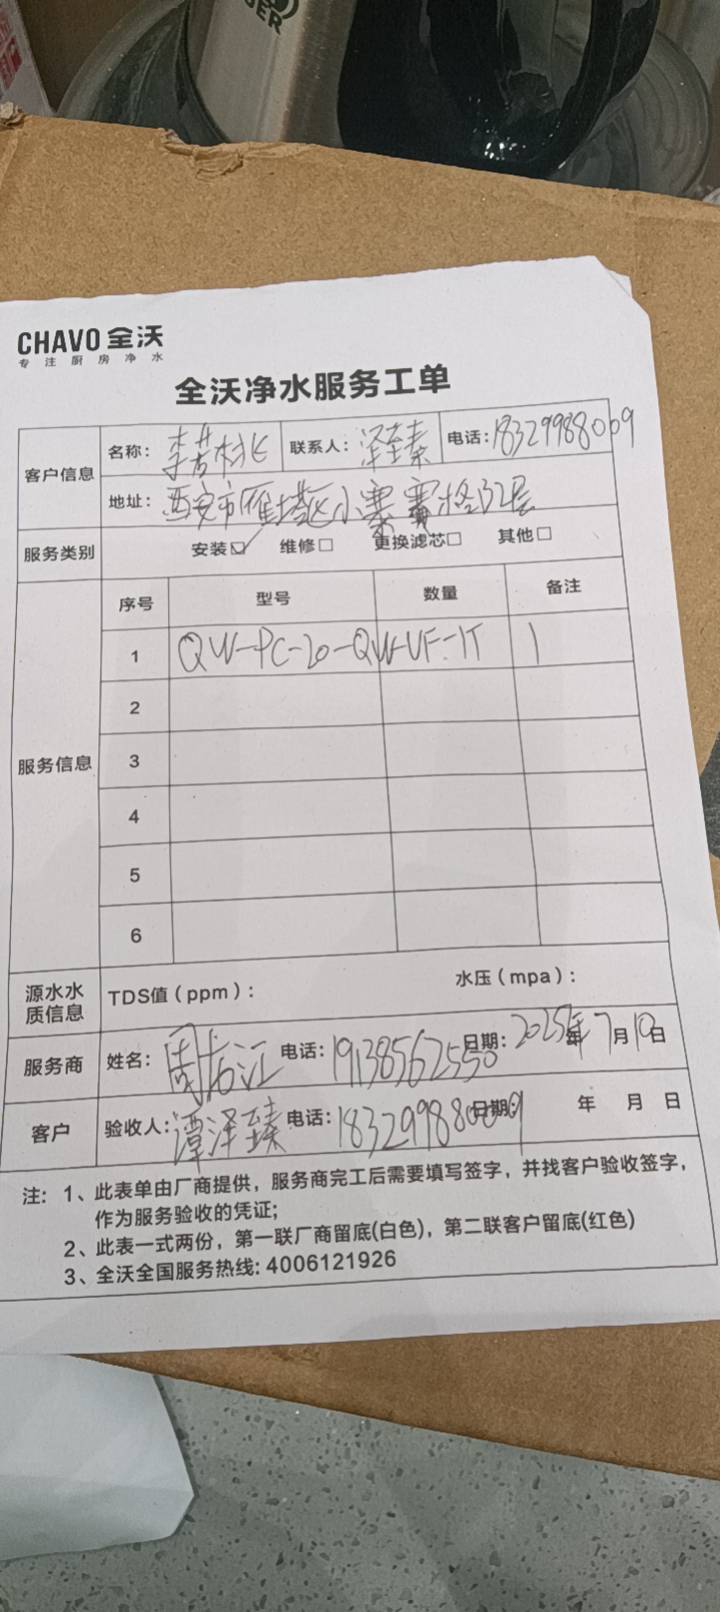 GER
CHAVO 全沃
专注厨房净水
全沃净水服务工单
客户信息
名称: 联系人: 泽臻 电话: 18329988069
地址: 西安市雁塔区小寨赛格B2层
服务类别 安装☑ 维修□ 更换滤芯□ 其他□
服务信息
序号 型号 数量 备注
1 QW-PC-20-QW-UF-1T 1
2
3
4
5
6
源水水质信息 TDS值（ppm）: 水压（mpa）:
服务商 姓名: 电话: 19138562550 日期: 2025年7月10日
客户 验收人: 谭泽臻 电话: 日期: 年 月 日
注: 1、此表单由厂商提供，服务商完工后需要填写签字，并找客户验收签字，
作为服务验收的凭证;
2、此表一式两份，第一联厂商留底(白色)，第二联客户留底(红色)
3、全沃全国服务热线: 4006121926